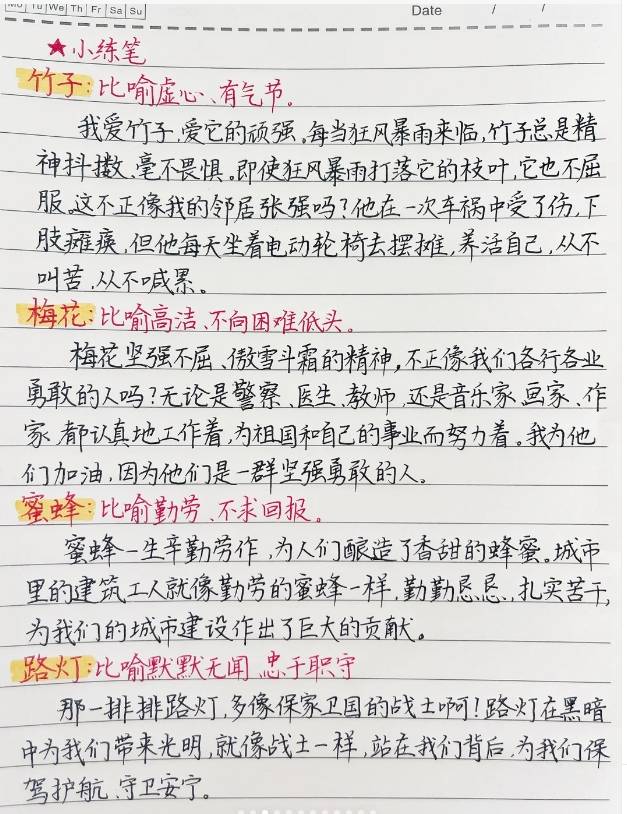 Mo Tu We Th Fr Sa Su
Date / /
★小练笔
竹子:比喻虚心、有气节。
我爱竹子,爱它的顽强。每当狂风暴雨来临,竹子总是精
神抖擞、毫不畏惧。即使狂风暴雨打落它的枝叶,它也不屈
服。这不正像我的邻居张强吗?他在一次车祸中受了伤,下
肢瘫痪,但他每天坐着电动轮椅去摆摊,养活自己,从不
叫苦,从不喊累。
梅花:比喻高洁、不向困难低头。
梅花坚强不屈、傲雪斗霜的精神,不正像我们各行各业
勇敢的人吗?无论是警察、医生、教师,还是音乐家、画家、作
家,都认真地工作着,为祖国和自己的事业而努力着。我为他
们加油,因为他们是一群坚强勇敢的人。
蜜蜂:比喻勤劳、不求回报。
蜜蜂一生辛勤劳作,为人们酿造了香甜的蜂蜜。城市
里的建筑工人就像勤劳的蜜蜂一样,勤勤恳恳,扎实苦干,
为我们的城市建设作出了巨大的贡献。
路灯:比喻默默无闻、忠于职守
那一排排路灯,多像保家卫国的战士啊!路灯在黑暗
中为我们带来光明,就像战士一样,站在我们背后,为我们保
驾护航、守卫安宁。